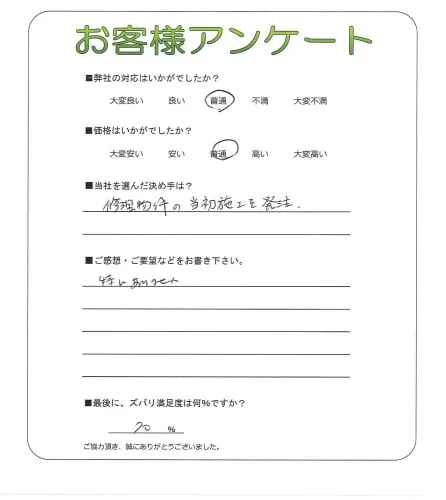 お客様アンケート
■弊社の対応はいかがでしたか？
大変良い 良い 普通 不満 大変不満
■価格はいかがでしたか？
大変安い 安い 普通 高い 大変高い
■当社を選んだ決め手は？
修理物件の当初施工を発注.
■ご感想・ご要望などをお書き下さい。
特にありません
■最後に、ズバリ満足度は何%ですか？
70 %
ご協力頂き、誠にありがとうございました。